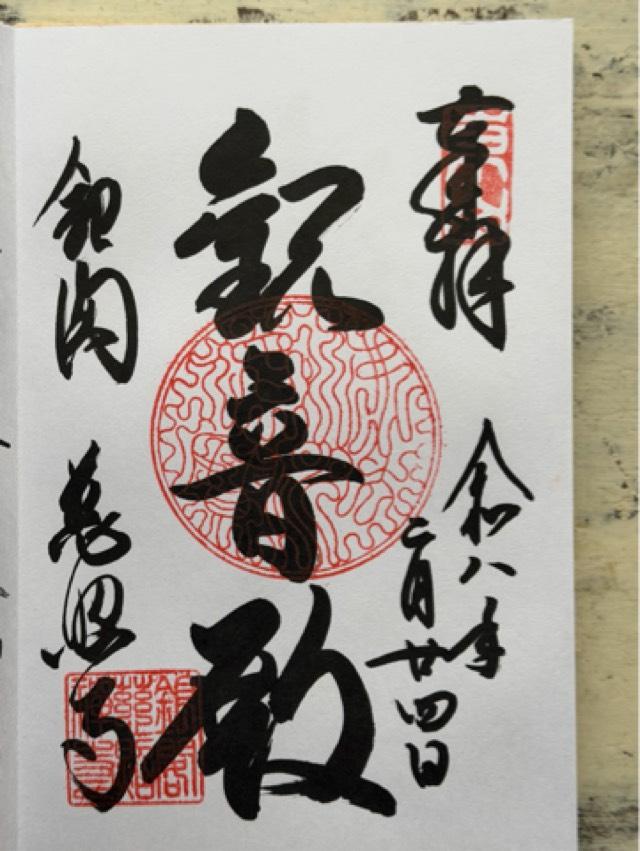 奉拝
令和八年
二月廿四日
観音殿
銀閣
慈照寺